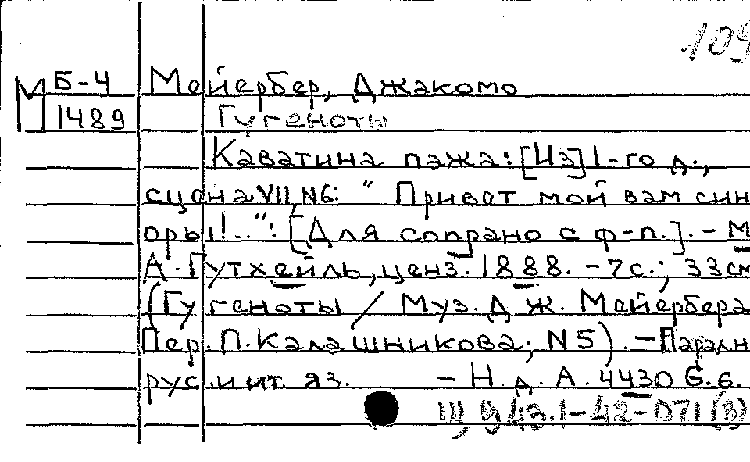 109
М Б-4 Мейербер, Джакомо
1489 Гугеноты
Каватина пажа: [Из] 1-го д.,
сцена VII, N6: " Привет мой вам синь
оры!..": [Для сопрано с ф-п.]. - М
А. Гутхейль, ценз. 1888. - 7с.; 33см
(Гугеноты / Муз. Дж. Мейербера
Пер. П. Калашникова; N5). - Паралл
рус. и ит. яз. - Н. д. А. 4430 G.